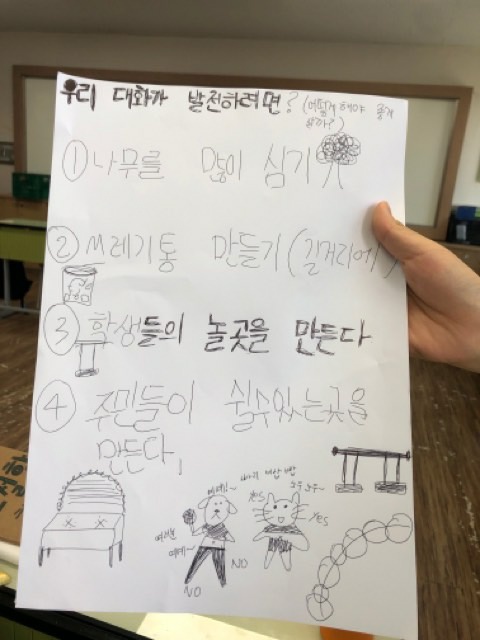 우리 대화가 발전하려면? (어떻게 해야 좋게
될까?)
① 나무를 많이 심기
② 쓰레기통 만들기 (길거리에)
③ 학생들의 놀곳을 만든다
④ 주민들이 쉴수있는곳을
만든다,
yes
yes
NO
NO